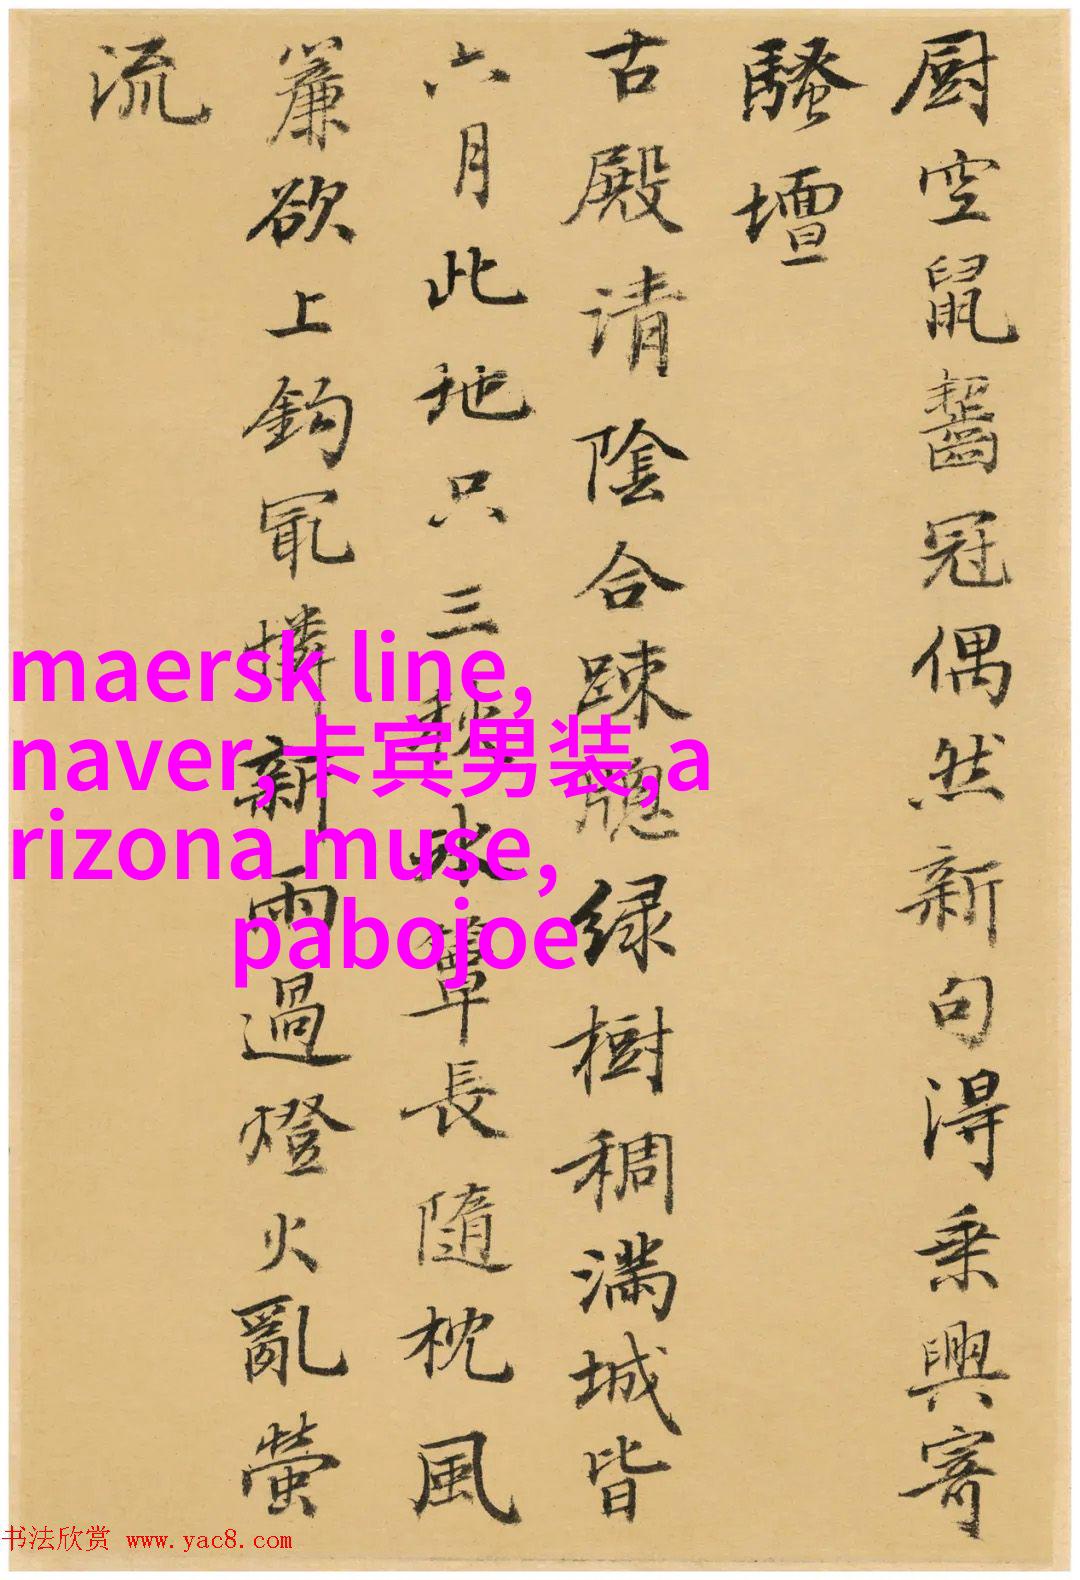 厨空鼠齧冠偶然新句得乘興寄
騷壇
古殿清陰合踈牕緑樹稠滿城皆
六月此地只三秋冰簟長隨枕風
簾欲上鈎冣憐新雨過燈火亂螢
流
maersk line,
naver,卡宾男装,a
rizona muse,
pabojoe
书法欣赏 www.yac8.com